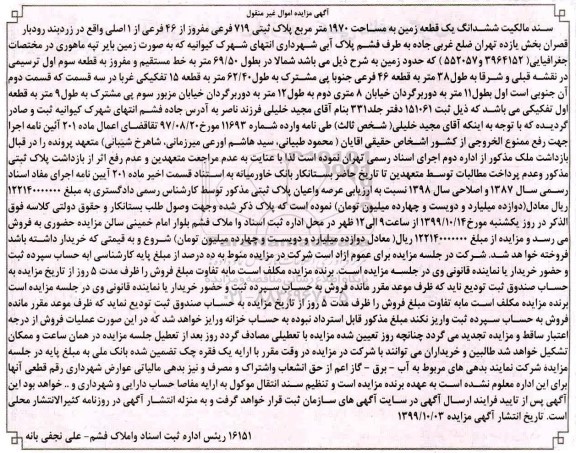 آگهی مزایده اموال غیر منقول
سند مالکیت ششدانگ یک قطعه زمین به مساحت ۱۹۷۰ متر مربع پلاک ثبتی ۷۱۹ فرعی مفروز از ۴۶ فرعی از ۱ اصلی واقع در زردبند رودبار
قصران بخش یازده تهران ضلع غربی جاده به طرف فشم پلاک آبی شهرداری انتهای شهرک کیوانیه که به صورت زمین بایر تپه ماهوری در مختصات
جغرافیایی( ۳۹۶۴۱۵۲ و ۵۵۲۰۵۷) که حدود زمین به شرح ذیل می باشد شمالا در بطول ۶۹/۵۰ متر به خط مستقیم و مفروز به قطعه سوم اول ترسیمی
در نقشه قبلی و شرقا به طول۳۸ متر به قطعه ۴۶ فرعی جنوبا پی مشترک به طول ۶۲/۴۰ متر به قطعه ۱۵ تفکیکی غربا در سه قسمت که قسمت دوم
آن جنوبی است اول بطول۱۱ متر به دوربرگردان خیابان ۸ متری دوم به طول۱۲ متر به دوربرگردان خیابان مزبور سوم پی مشترک به طول۹ متر به قطعه
اول تفکیکی می باشد که ذیل ثبت ۱۵۱۰۶۱ دفتر جلد۳۳۱ بنام آقای مجید خلیلی فرزند ناصر به آدرس جاده فشم انتهای شهرک کیوانیه ثبت و صادر
گردیده که با توجه به اینکه آقای مجید خلیلی( شخص ثالث) طی نامه وارده شماره ۱۱۶۹۳ مورخ۹۷/۰۸/۲۰ تقاقضای اعمال ماده ۲۰۱ آئین نامه اجرا
جهت رفع ممنوع الخروجی از کشور اشخاص حقیقی اقایان ( محمود طبیبانی، سید هاشم اورعی میرزمانی، شاهرخ شیبانی) متعهد پرونده را در قبال
بازداشت ملک مذکور از اداره دوم اجرای اسناد رسمی تهران نموده است لذا با عنایت به عدم مراجعت متعهدین و عدم رفع اثر از بازداشت پلاک ثبتی
مذکور وعدم پرداخت مطالبات توسط متعهدین تا تاریخ حاضر بستانکار بانک خاورمیانه به استناد قسمت اخیر ماده ۲۰۱ آیین نامه اجرای مفاد اسناد
رسمی سال ۱۳۸۷ و اصلاحی سال ۱۳۹۸ نسبت به ارزیابی عرصه واعیان پلاک ثبتی مذکور توسط کارشناس رسمی دادگستری به مبلغ ۱۲۲۱۴۰۰۰۰۰۰۰
ریال معادل(دوازده میلیارد و دویست و چهارده میلیون تومان) نموده است که پلاک ذکر شده وجهت وصول طلب بستانکار و حقوق دولتی کلاسه فوق
الذکر در روز یکشنبه مورخ۱۳۹۹/۱۰/۱۴ از ساعت۹ الی ۱۲ ظهر در محل اداره ثبت اسناد وا ملاک فشم بلوار امام خمینی سالن مزایده حضوری به فروش
می رسد و مزایده از مبلغ ۱۲۲۱۴۰۰۰۰۰۰۰ ریال( معادل دوازده میلیارد و دویست و چهارده میلیون تومان) شروع و به قیمتی که خریدار داشته باشد
فروخته خوا هد شد. شرکت در جلسه مزایده برای عموم آزاد است شرکت در مزایده منوط به ده درصد از مبلغ پایه کارشناسی ابه حساب سپرده ثبت
و حضور خریدار یا نماینده قانونی وی در جلسه مزایده است. برنده مزایده مکلف است مابه تفاوت مبلغ فروش را ظرف مدت ۵ روز از تاریخ مزایده به
حساب صندوق ثبت تودیع ناید که ظرف موعد مقرر مانده فروش به حساب سپرده ثبت و حضور خریدار یا نماینده قانونی وی در جلسه مزایده است
برنده مزایده مکلف است مابه تفاوت مبلغ فروش را ظرف مدت ۵ روز از تاریخ مزایده به حساب صندوق ثبت تودیع نماید که ظرف موعد مقرر مانده
فروش به حساب سپرده ثبت واریز نکند مبلغ مذکور قابل استرداد نبوده به حساب خزانه ورایز خواهد شد که در این صورت عملیات فروش از درجه
اعتبار ساقط و مزایده تجدید می گردد چنانچه روز تعیین شده مزایده با تعطیلی مصادف گردد روز بعد از تعطیل جلسه مزایده در همان ساعت و ممکان
تشکیل خواهد شد طالبین و خریداران می توانند با شرکت در مزایده در وقت مقرر با ارایه یک فقره چک تضمین شده بانک ملی به مبلغ پایه در جلسه
مزایده شرکت نمایند بدهی های مربوط به آب - برق - گاز اعم از حق انشعاب واشتراک و مصرف و نیز بدهی مالیاتی عوارض شهرداری رقم قطعی آنها
برای این اداره معلوم نشده است به عهده برنده مزایده است و تنظیم سند انتقال موکول به ارایه مفاصا حساب دارایی و شهرداری و .. خواهد بود این
آگهی پس از تایید فرایند ارسال آگهی در سایت آگهی های سازمان ثبت قرار خواهد گرفت و به منزله انتشار آگهی در روزنامه کثیرالانتشار محلی
است. تاریخ انتشار آگهی مزایده ۱۳۹۹/۱۰/۰۳
۱۶۱۵۱ رئیس اداره ثبت اسناد واملاک فشم- علی نجفی بانه